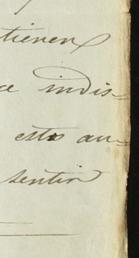 tienen
ce indis-
esta au-
sentir